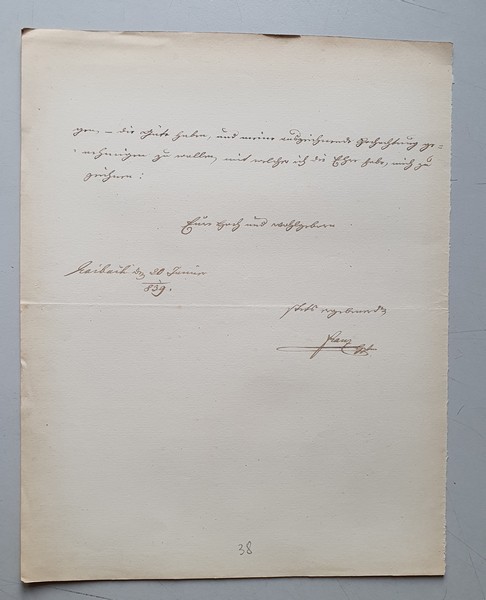 gen, – die Güte haben, und meine auszeichnende Hochachtung ge=
nehmigen zu wollen, mit welcher ich die Ehre habe, mich zu
zeichnen:
Euer Hoch und Wohlgeboren
Laibach den 20 Januar
839.
stets ergebenster
Franz
38